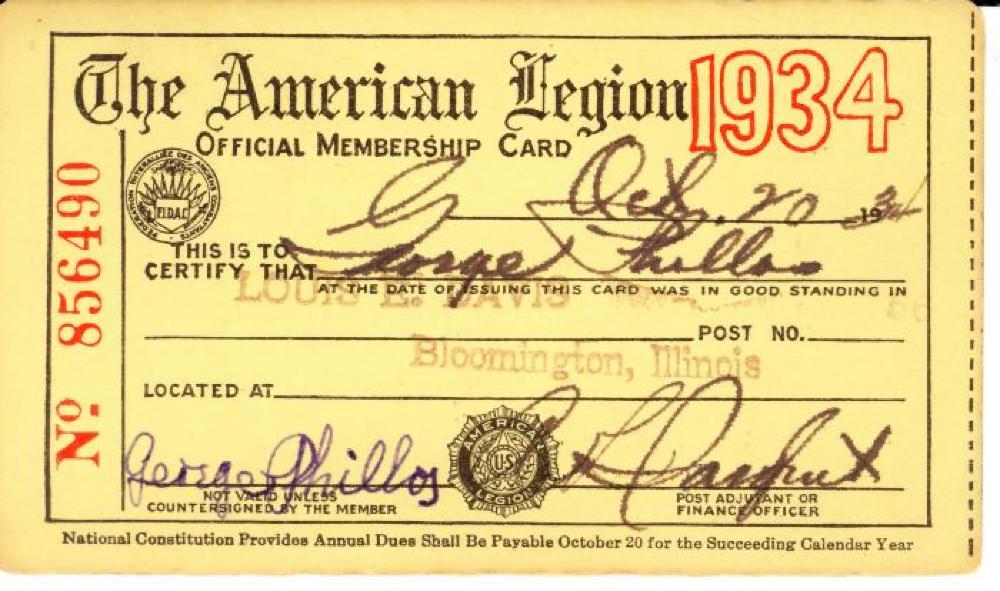 The American Legion 1934
OFFICIAL MEMBERSHIP CARD
FÉDÉRATION INTERALLIÉE DES ANCIENS COMBATTANTS
F.I.D.A.C.
Oct. 20 1934
THIS IS TO
CERTIFY THAT George Phillos
AT THE DATE OF ISSUING THIS CARD WAS IN GOOD STANDING IN
LOUIS E. DAVIS 56
POST NO.
Bloomington, Illinois
LOCATED AT
George Phillos
NOT VALID UNLESS
COUNTERSIGNED BY THE MEMBER
AMERICAN
US
LEGION
POST ADJUTANT OR
FINANCE OFFICER
National Constitution Provides Annual Dues Shall Be Payable October 20 for the Succeeding Calendar Year
No. 856490